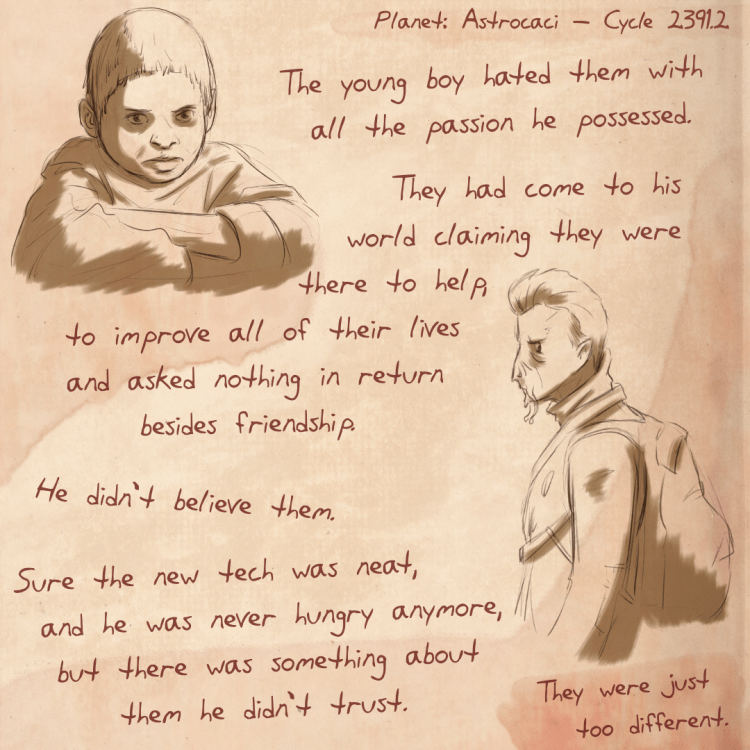 Planet: Astrocaci – Cycle 2391.2
The young boy hated them with
all the passion he possessed.
They had come to his
world claiming they were
there to help,
to improve all of their lives
and asked nothing in return
besides friendship.
He didn't believe them.
Sure the new tech was neat,
and he was never hungry anymore,
but there was something about
them he didn't trust.
They were just
too different.